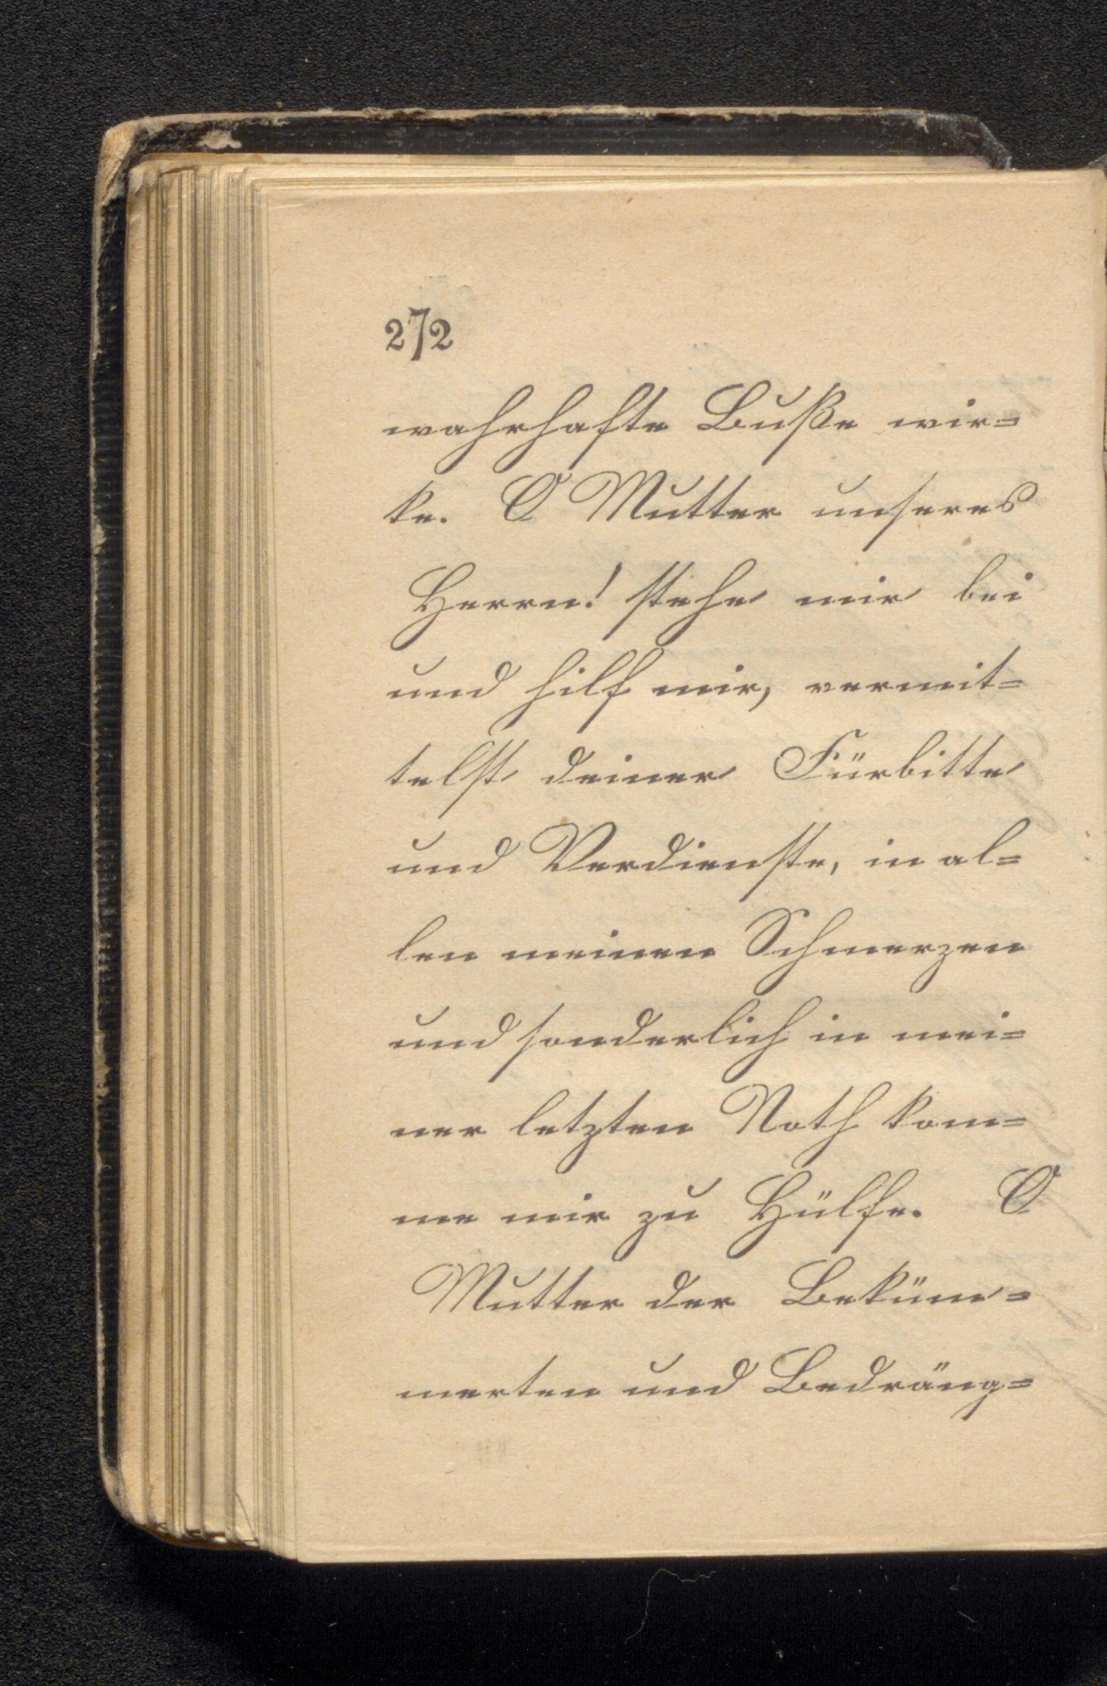 272
wahrhafte Buße wir=
ke. O Mutter unseres
Herrn! stehe mir bei
und hilf mir, vermit=
telst deiner Fürbitte
und Verdienste, in al=
len meinen Schmerzen
und sonderlich in mei=
ner letzten Noth kom=
me mir zu Hülfe. O
Mutter der Beküm=
merten und Bedräng=